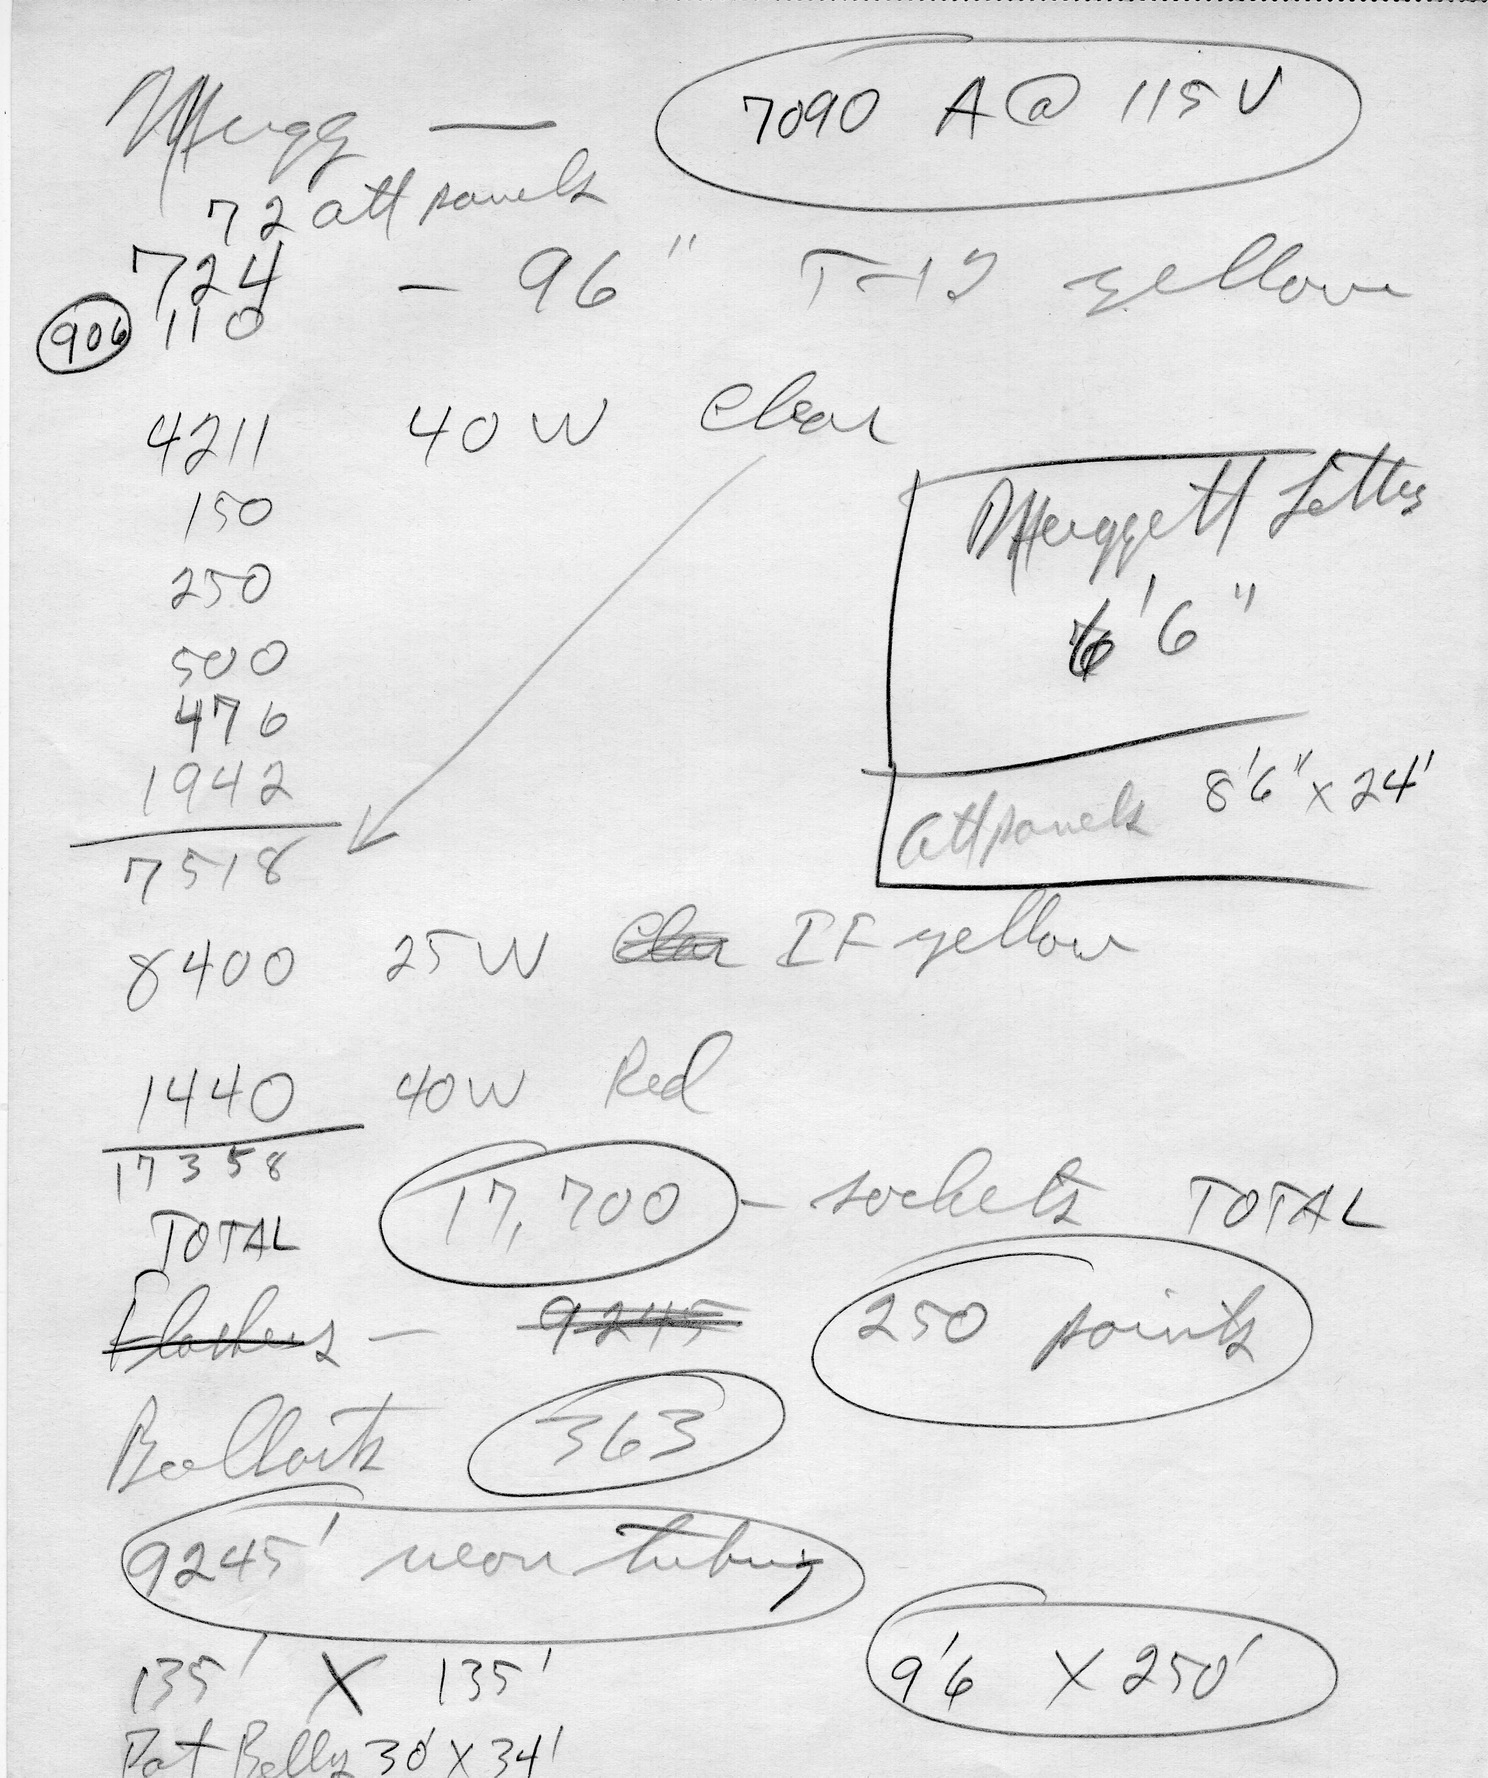 Nugg — 7090 A @ 115 V
72 att panels
724 - 96" T-12 yellow
906 110
4211 40 W Clear
150
250
500
476
1942
7518
Nuggett Letters
6'6"
att panels 8'6" x 24'
8400 25W Clear IF yellow
1440 40W Red
17358
TOTAL 17,700 - sockets TOTAL
Flashers - 9245 250 points
Ballasts 363
9245' neon tubing
135' X 135' 9'6 X 250'
Pot Belly 30' X 34'